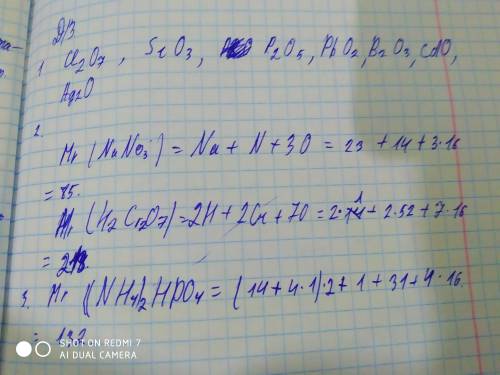 Д/З
1. Cl2O7, S2O3, P2O5, PbO2, B2O3, CdO,
Ag2O
2.
Mr (NaNO3) = Na + N + 3O = 23 + 14 + 3·16
= 85.
Mr (H2Cr2O7) = 2H + 2Cr + 7O = 2·1 + 2·52 + 7·16
= 218.
3. Mr ((NH4)2HPO4 = (14 + 4·1)·2 + 1 + 31 + 4·16.
= 132
SHOT ON REDMI 7
AI DUAL CAMERA